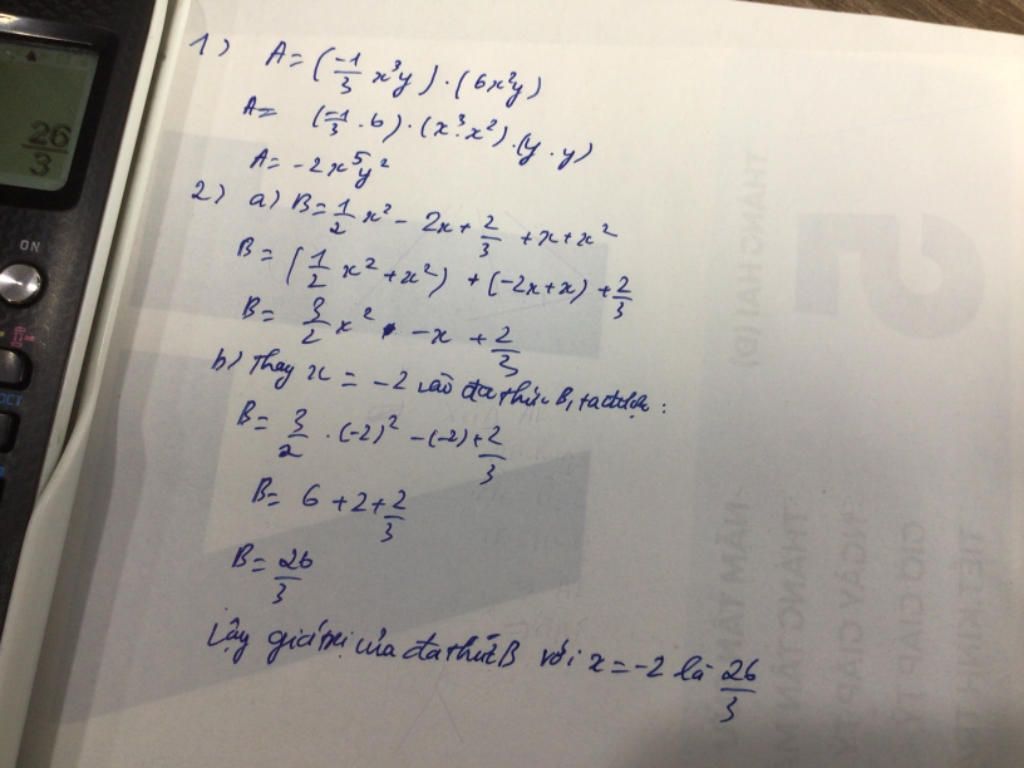 26/3
ON
1) A = (-1/3 x³y) . (6x²y)
A = (-1/3 . 6) . (x³. x²) . (y . y)
A = -2x⁵y²
2) a) B = 1/2 x² - 2x + 2/3 + x + x²
B = (1/2 x² + x²) + (-2x + x) + 2/3
B = 3/2 x² - x + 2/3
b) Thay x = -2 vào đa thức B, ta được :
B = 3/2 . (-2)² - (-2) + 2/3
B = 6 + 2 + 2/3
B = 26/3
Vậy giá trị của đa thức B với x = -2 là 26/3
THÁNG HAI (Đ)
5
NGÀY GIÁP TÝ
GIỜ GIÁP TÝ